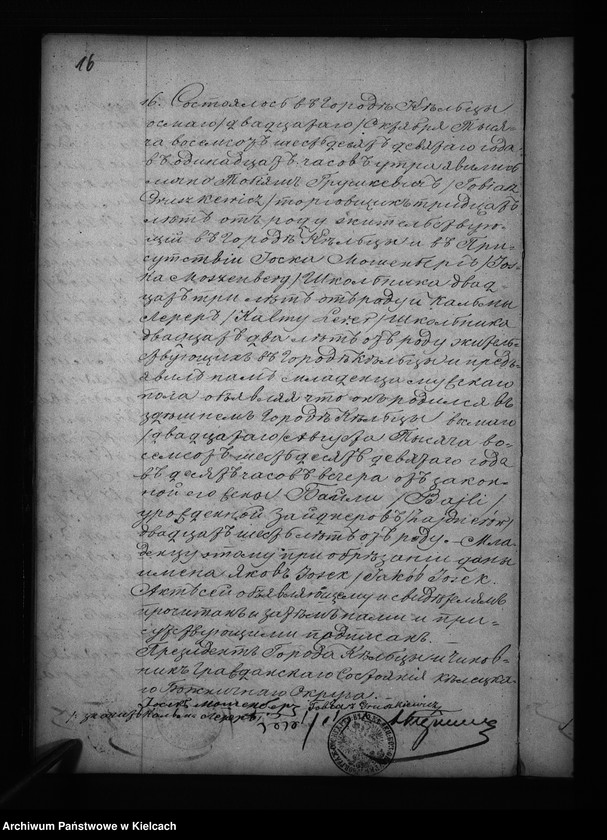 16
16. Состоялось въ Городѣ Кѣльцы
осмаго /двадцатаго/ Октября Тыся-
ча восемсотъ шестьдесятъ девятаго года
въ одинадцать часовъ утра явились
лично Товіяшъ /Tobiasz
/торговщикъ тридцать
лѣтъ отъ роду жительствую-
щій въ Городѣ Кѣльцы и въ При-
сутствіи Іоска Мошенбергъ /Jos-
ka Moszenberg/ Школьника двад-
цать три лѣтъ отъ роду и Кальмы
Лереръ /Kalmy Lerer/ Школьника
двадцать два лѣтъ отъ роду житель-
ствующихъ въ Городѣ Кѣльцы и предъ-
явилъ намъ младенца мужскаго
пола объявляя что онъ родился въ
здѣшнемъ Городѣ Кѣльцы
/двадцатаго/ Августа Тысяча во-
семсотъ шестьдесятъ девятаго года
въ десять часовъ вечера отъ закон-
ной его жены Байли /Bajli/
урожденной
двадцать шесть лѣтъ отъ роду. Мла-
денцу этому при обрѣзаніи даны
имена Яковъ Іосекъ /Jakób Josek.
Актъ сей объявляющему и свидѣтелямъ
прочитанъ и затѣмъ нами и при-
сутствующими подписанъ.
Президентъ Города Кѣльцы и Чинов-
никъ Гражданскаго Состоянія Кѣлецка-
го Божничнаго Округа.
Archiwum Państwowe w Kielcach